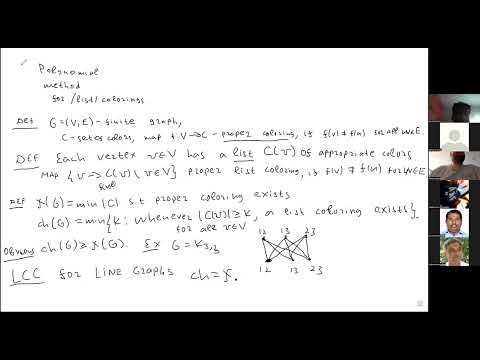 Polynomial
method
for /list/ colorings
Def G=(V,E) - finite graph,
C - set of colors, map f: V→C - proper coloring, if f(v)≠f(u) for all uv∈E.
DEF Each vertex v∈V has a list C(v) of appropriate colors
MAP {v → C(v) | v∈V} proper list coloring, if f(v) ≠ f(u) for uv∈E
f(v)
DEF χ(G)=min|C| s.t. proper coloring exists
ch(G)=min{k: whenever |C(v)|≥k, a list coloring exists}
for all v∈V
OBVIOUS ch(G)≥χ(G). Ex G=K3,3
12 13 23
12 13 23
LCC for LINE Graphs ch=χ.